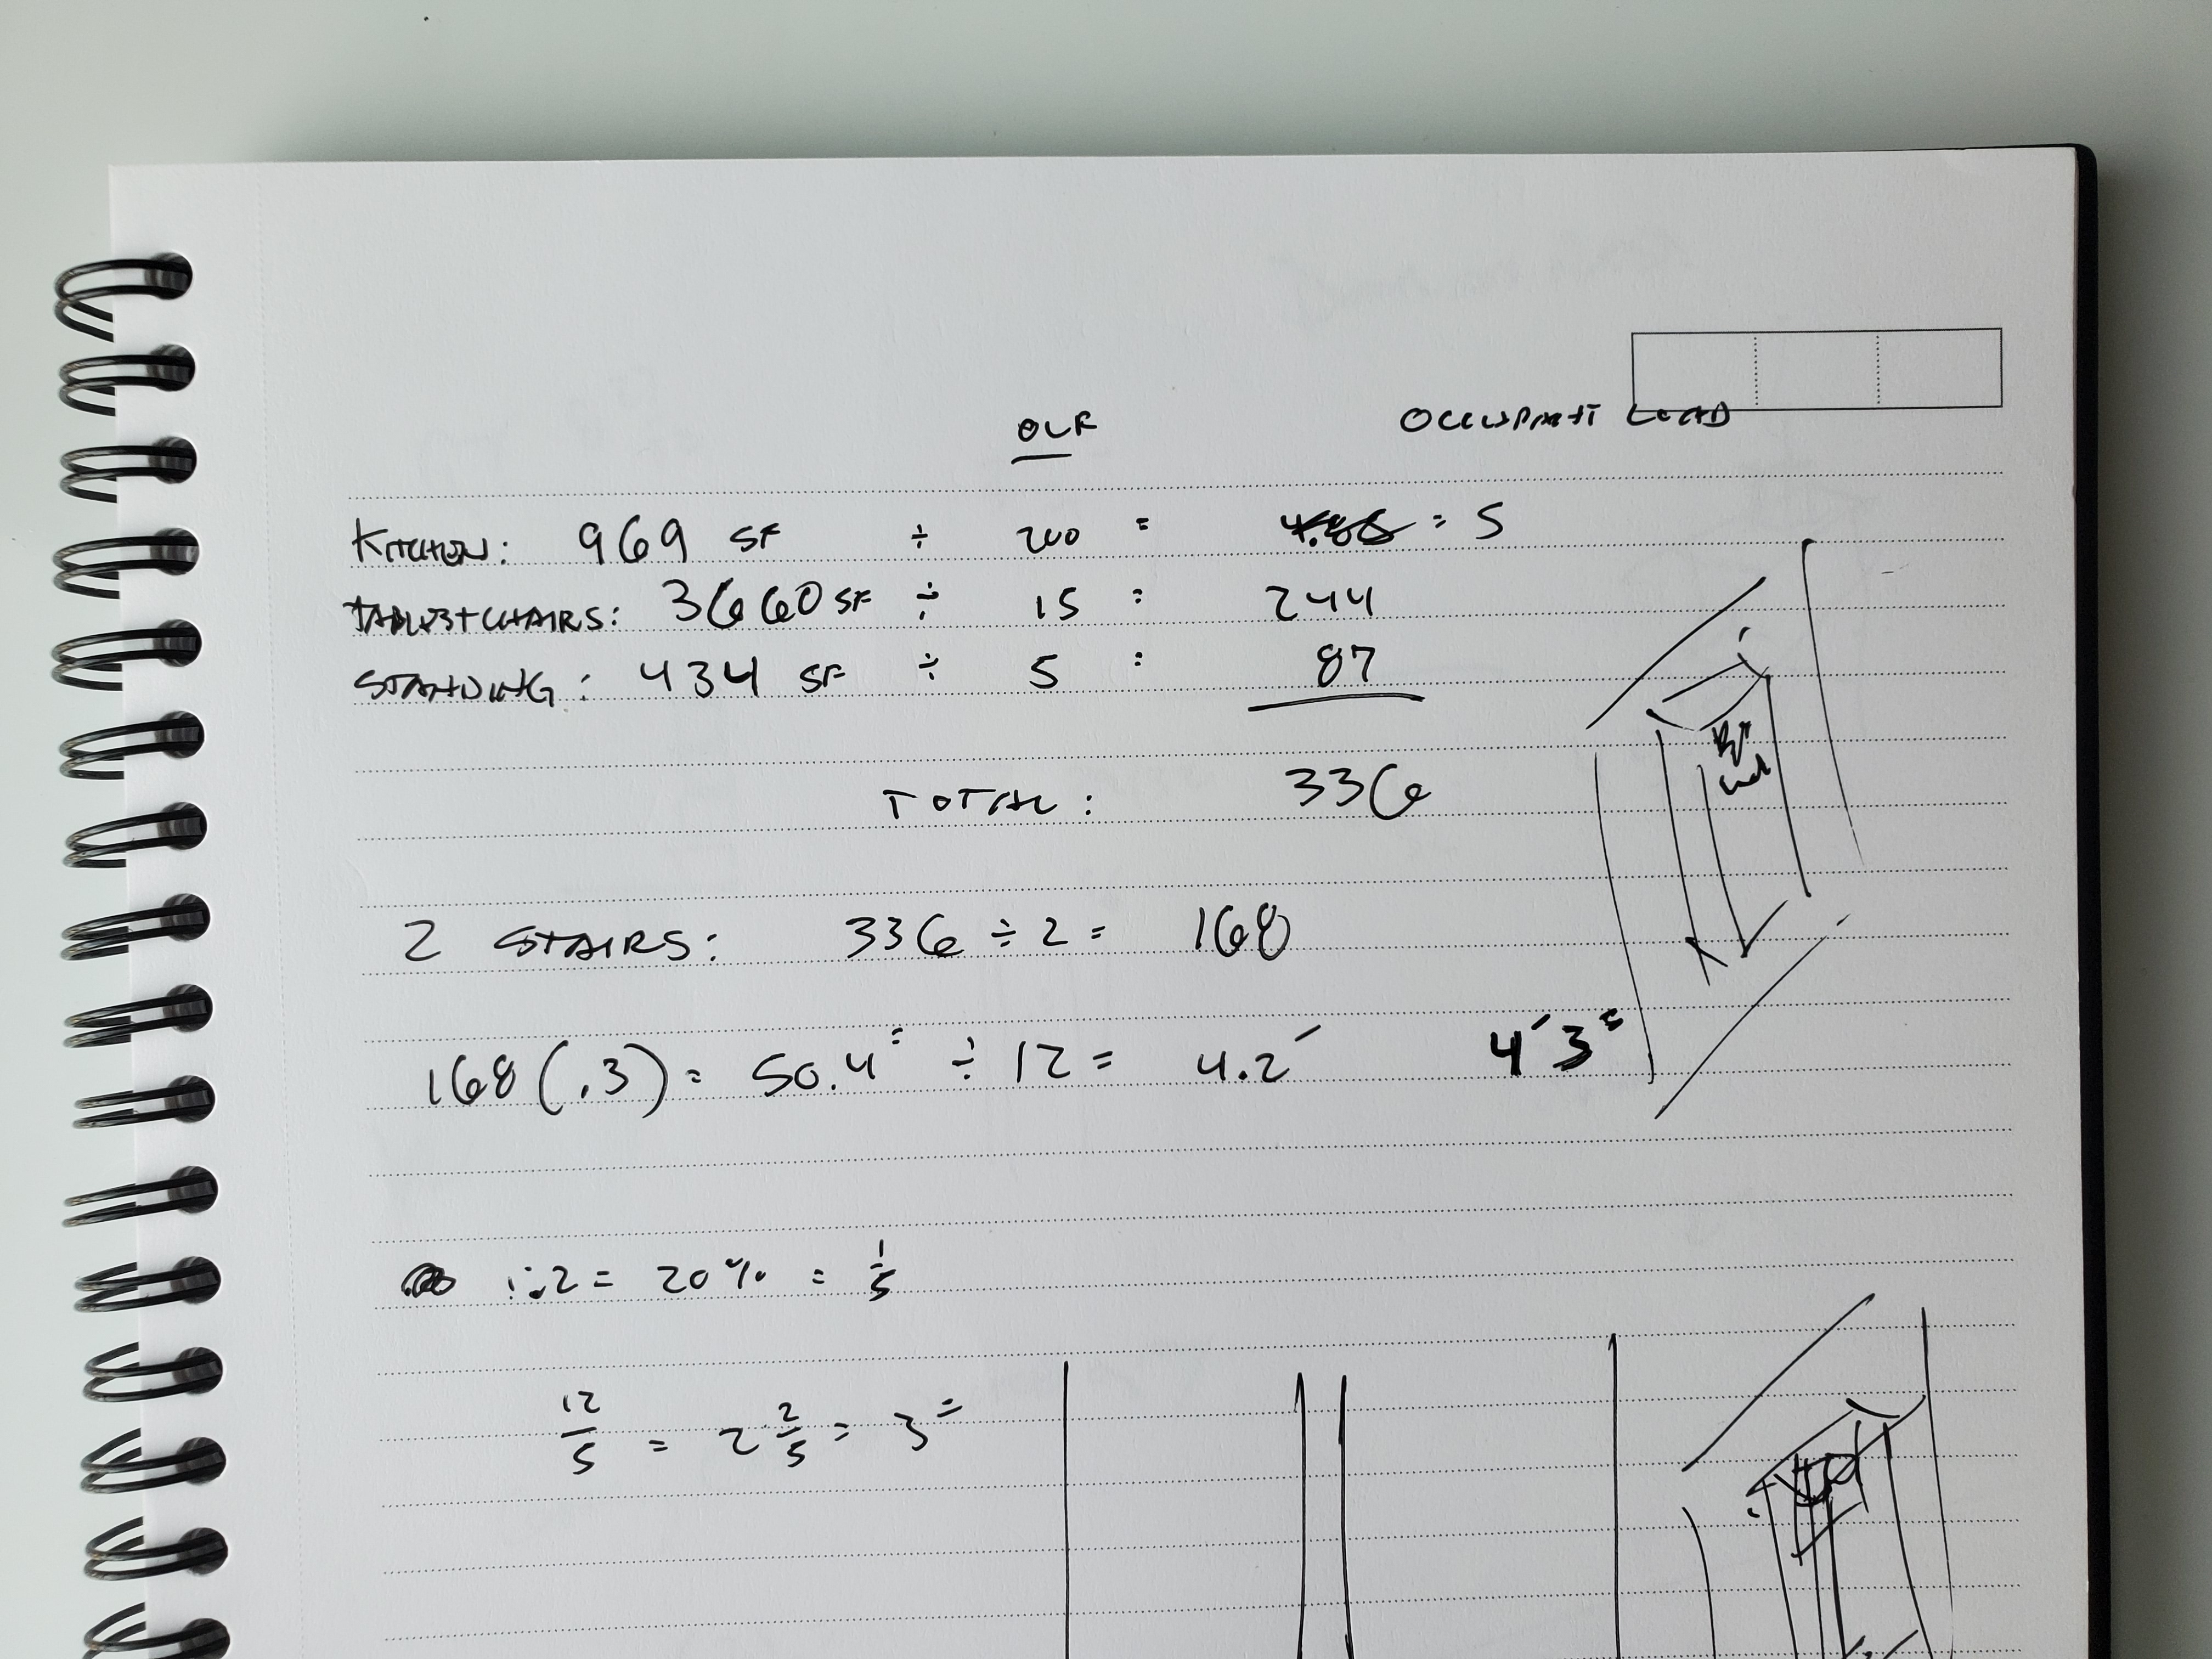 OLF OCCUPANT LOAD
KITCHEN: 969 SF ÷ 200 = = 5
TABLES + CHAIRS: 3660 SF ÷ 15 = 244
STANDING: 434 SF ÷ 5 = 87
TOTAL: 336
2 STAIRS: 336 ÷ 2 = 168
168 (.3) = 50.4" ÷ 12 = 4.2' 4'3"
.2 = 20% = 1/5
12/5 = 2 2/5 = 3"